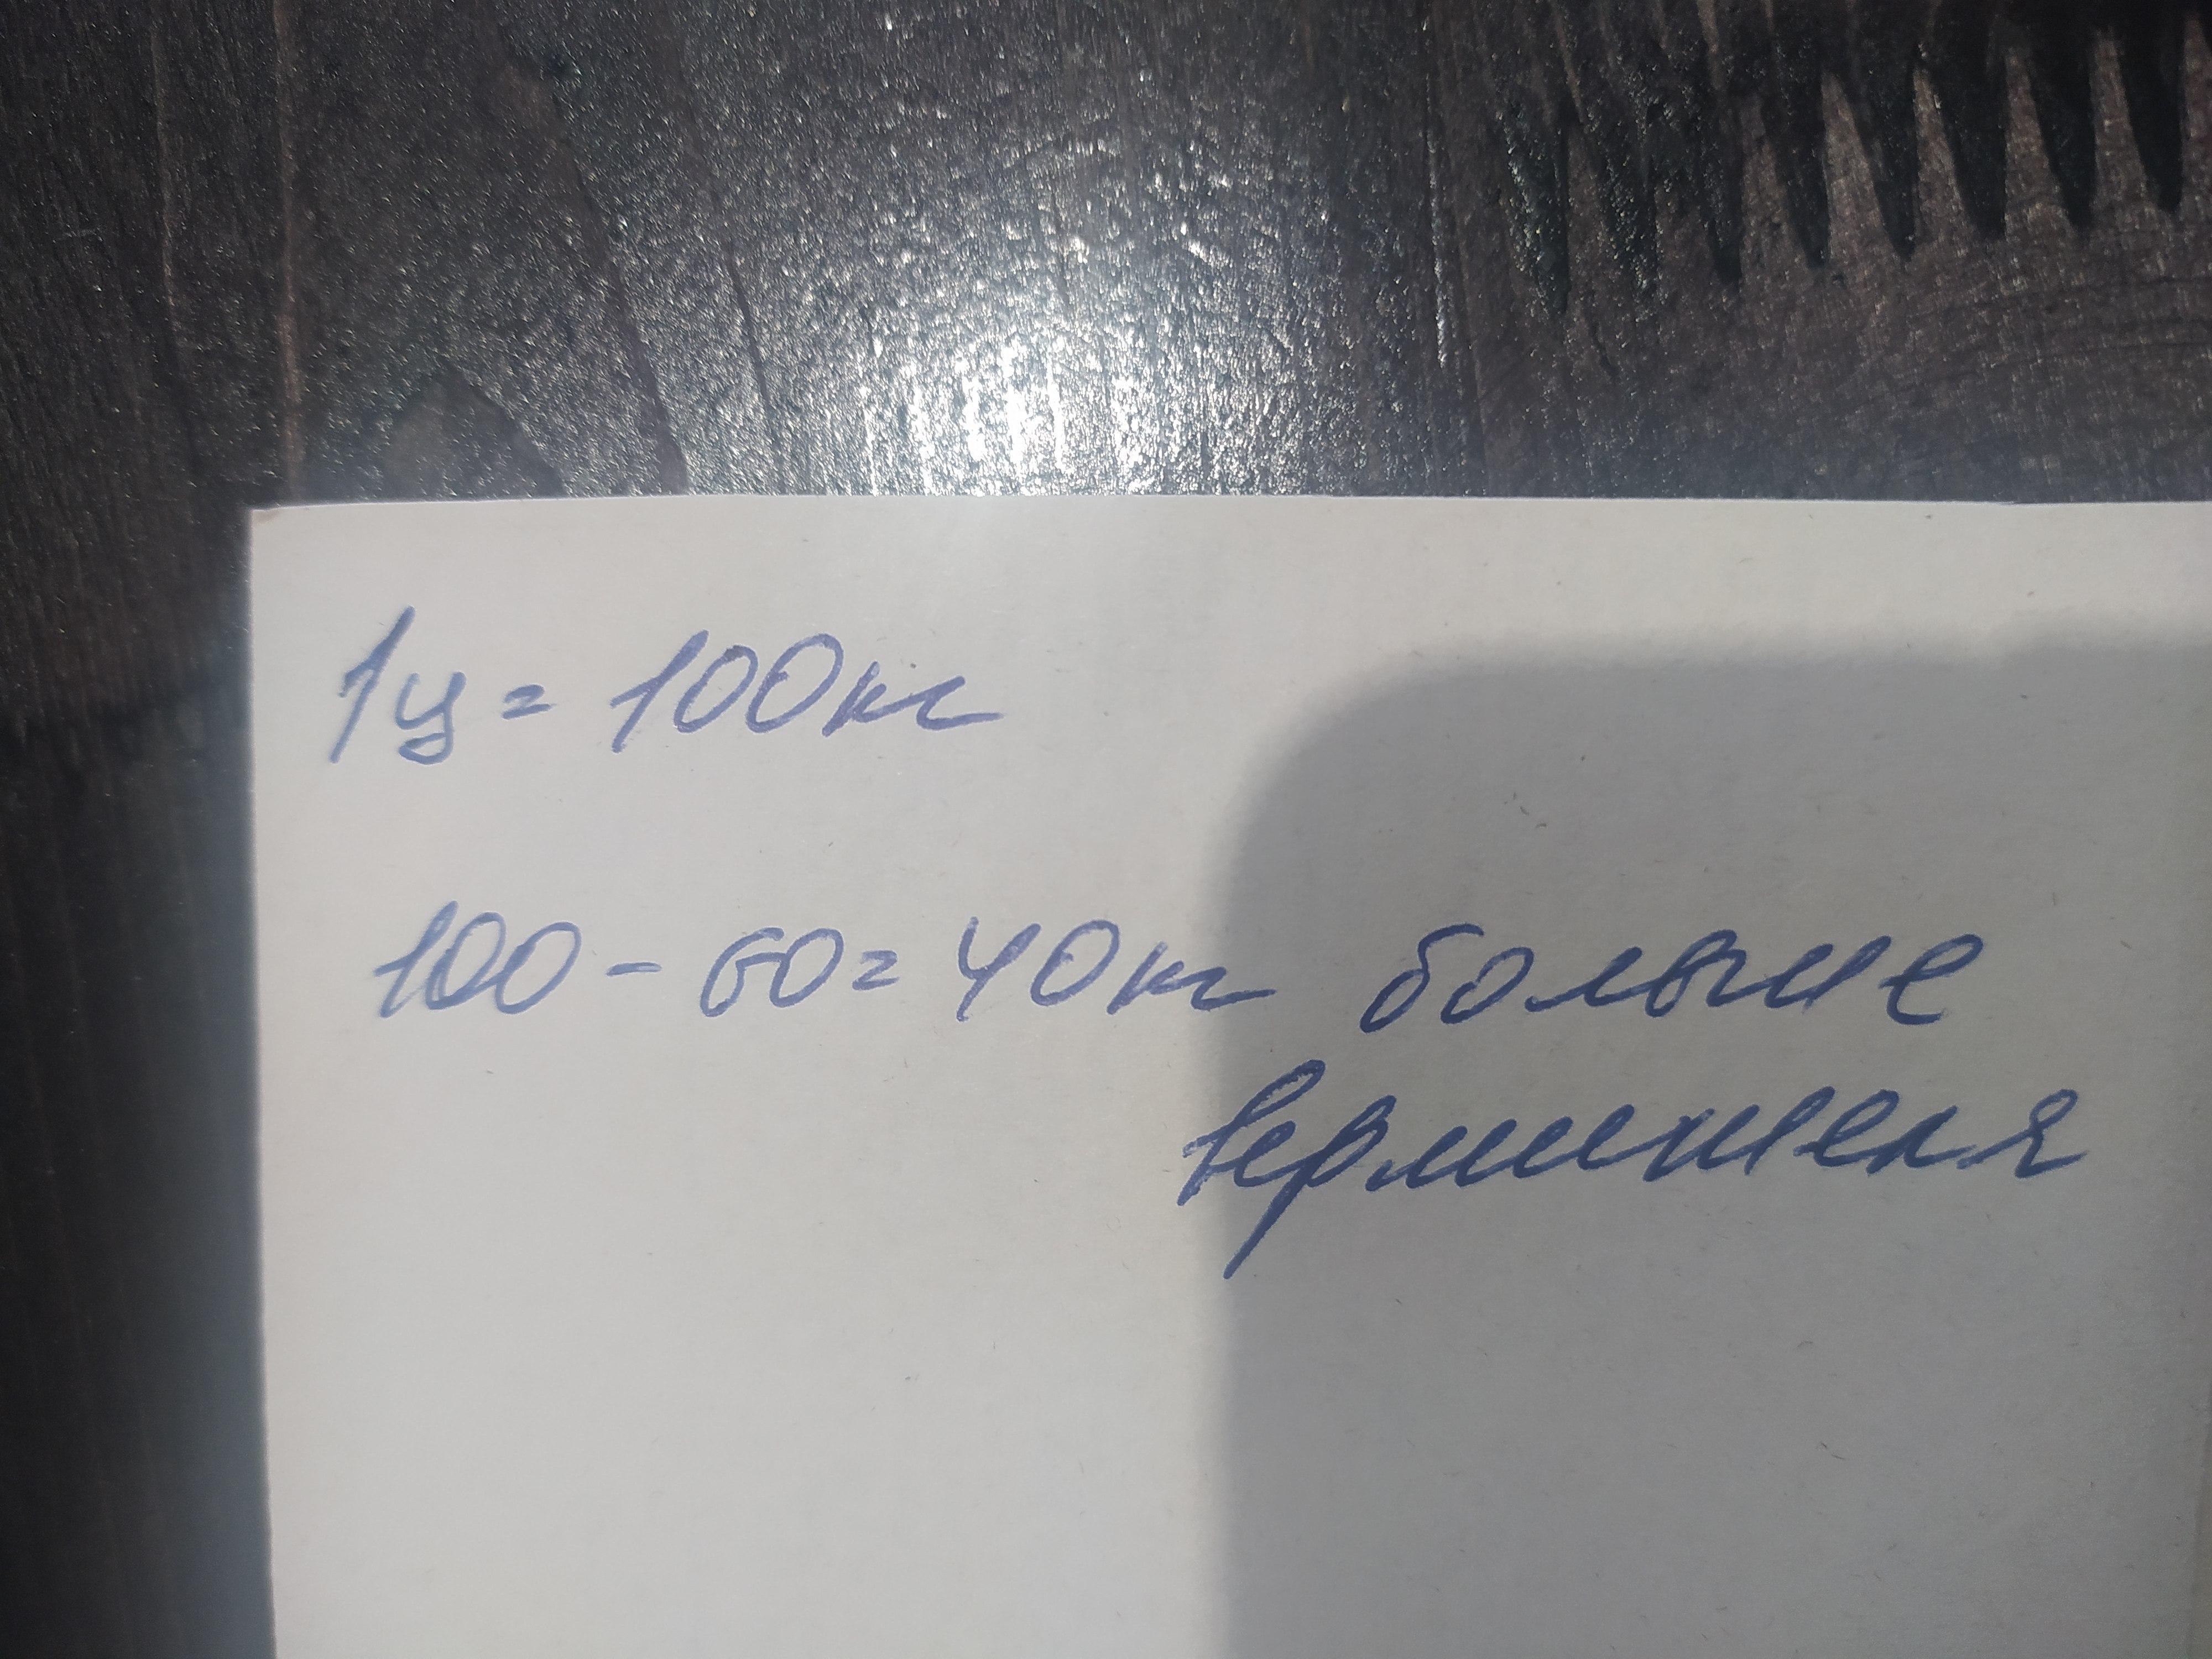 1ц = 100кг
100 - 60 = 40кг больше
вермишеля